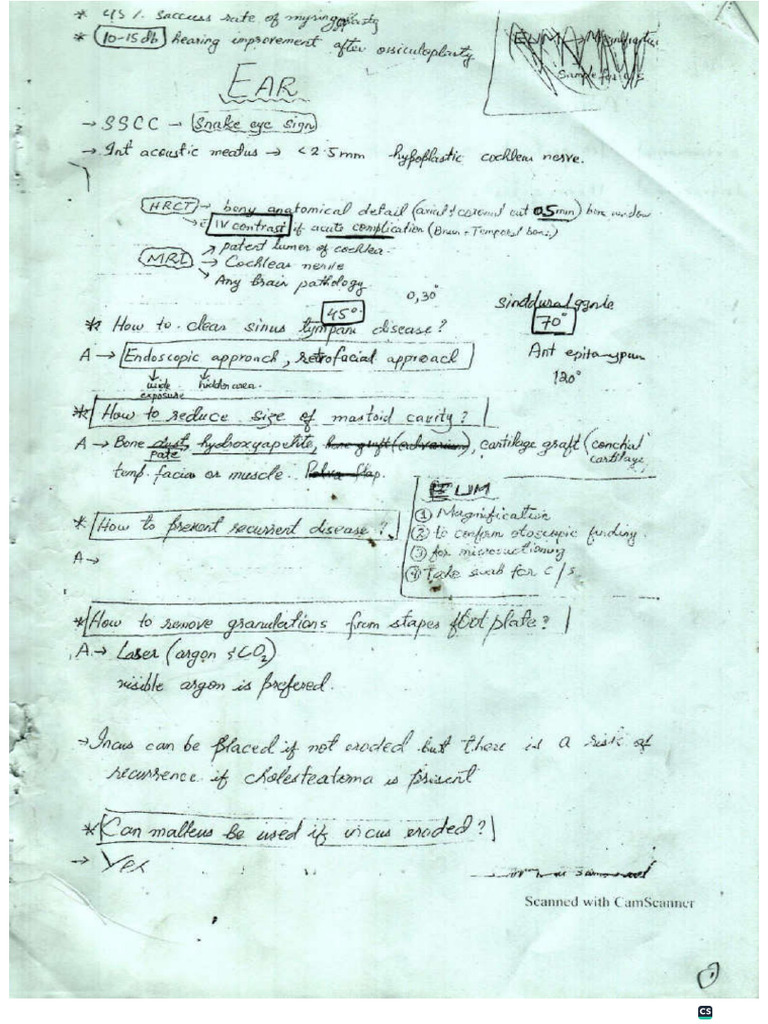 * 95% saccuss rate of myringoplasty
* 10-15db hearing improvement after ossiculoplasty
EUM
Magnification
Sample for c/s
EAR
→ SSCC → Snake eye sign
→ Int acoustic meatus → <2.5mm hypoplastic cochlear nerve.
HRCT → bony anatomical detail (axial & coronal cut 0.5mm) bone window
→ c̄ IV contrast if acute complication (Brain + Temporal bone)
MRI → patent lumen of cochlea.
→ Cochlear nerve
→ Any brain pathology
0,30°
45°
* How to clear sinus tympani disease?
A → Endoscopic approach, retrofacial approach
wide exposure
hidden area.
70°
Ant epitympan
120°
* How to reduce size of mastoid cavity?
A → Bone dust pate hydroxyapetite, bone graft (calvarium), cartilage graft (conchal cartilage
temp. facia or muscle. Palva flap.
EUM
① Magnification
② to conform otoscopic finding.
③ for microsuctioning
④ Take swab for c/s.
* How to prevent recurrent disease?
A →
* How to remove granulations from stapes footplate?
A → Laser (argon & CO2)
visible argon is prefered.
→ Incus can be placed if not eroded but there is a risk of
recurrence if cholesteatoma is present
* Can malleus be used if incus eroded?
→ Yes
Scanned with CamScanner
CS